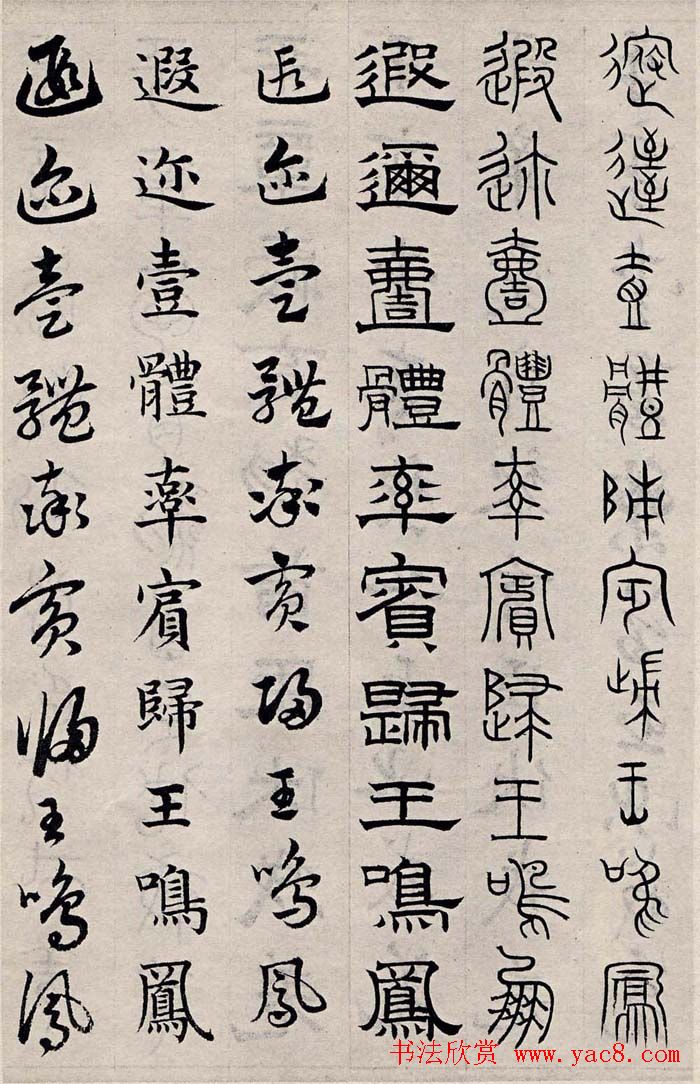 遐邇壹體率賓歸王鳴鳳
遐迩壹體率賓歸王鳴鳳
遐邇壹體率賓歸王鳴鳳
遐迩壹體率賓歸王鳴鳳
遐迩壹體率賓歸王鳴鳳
遐迩壹體率賓歸王鳴鳳
书法欣赏 www.yac8.com